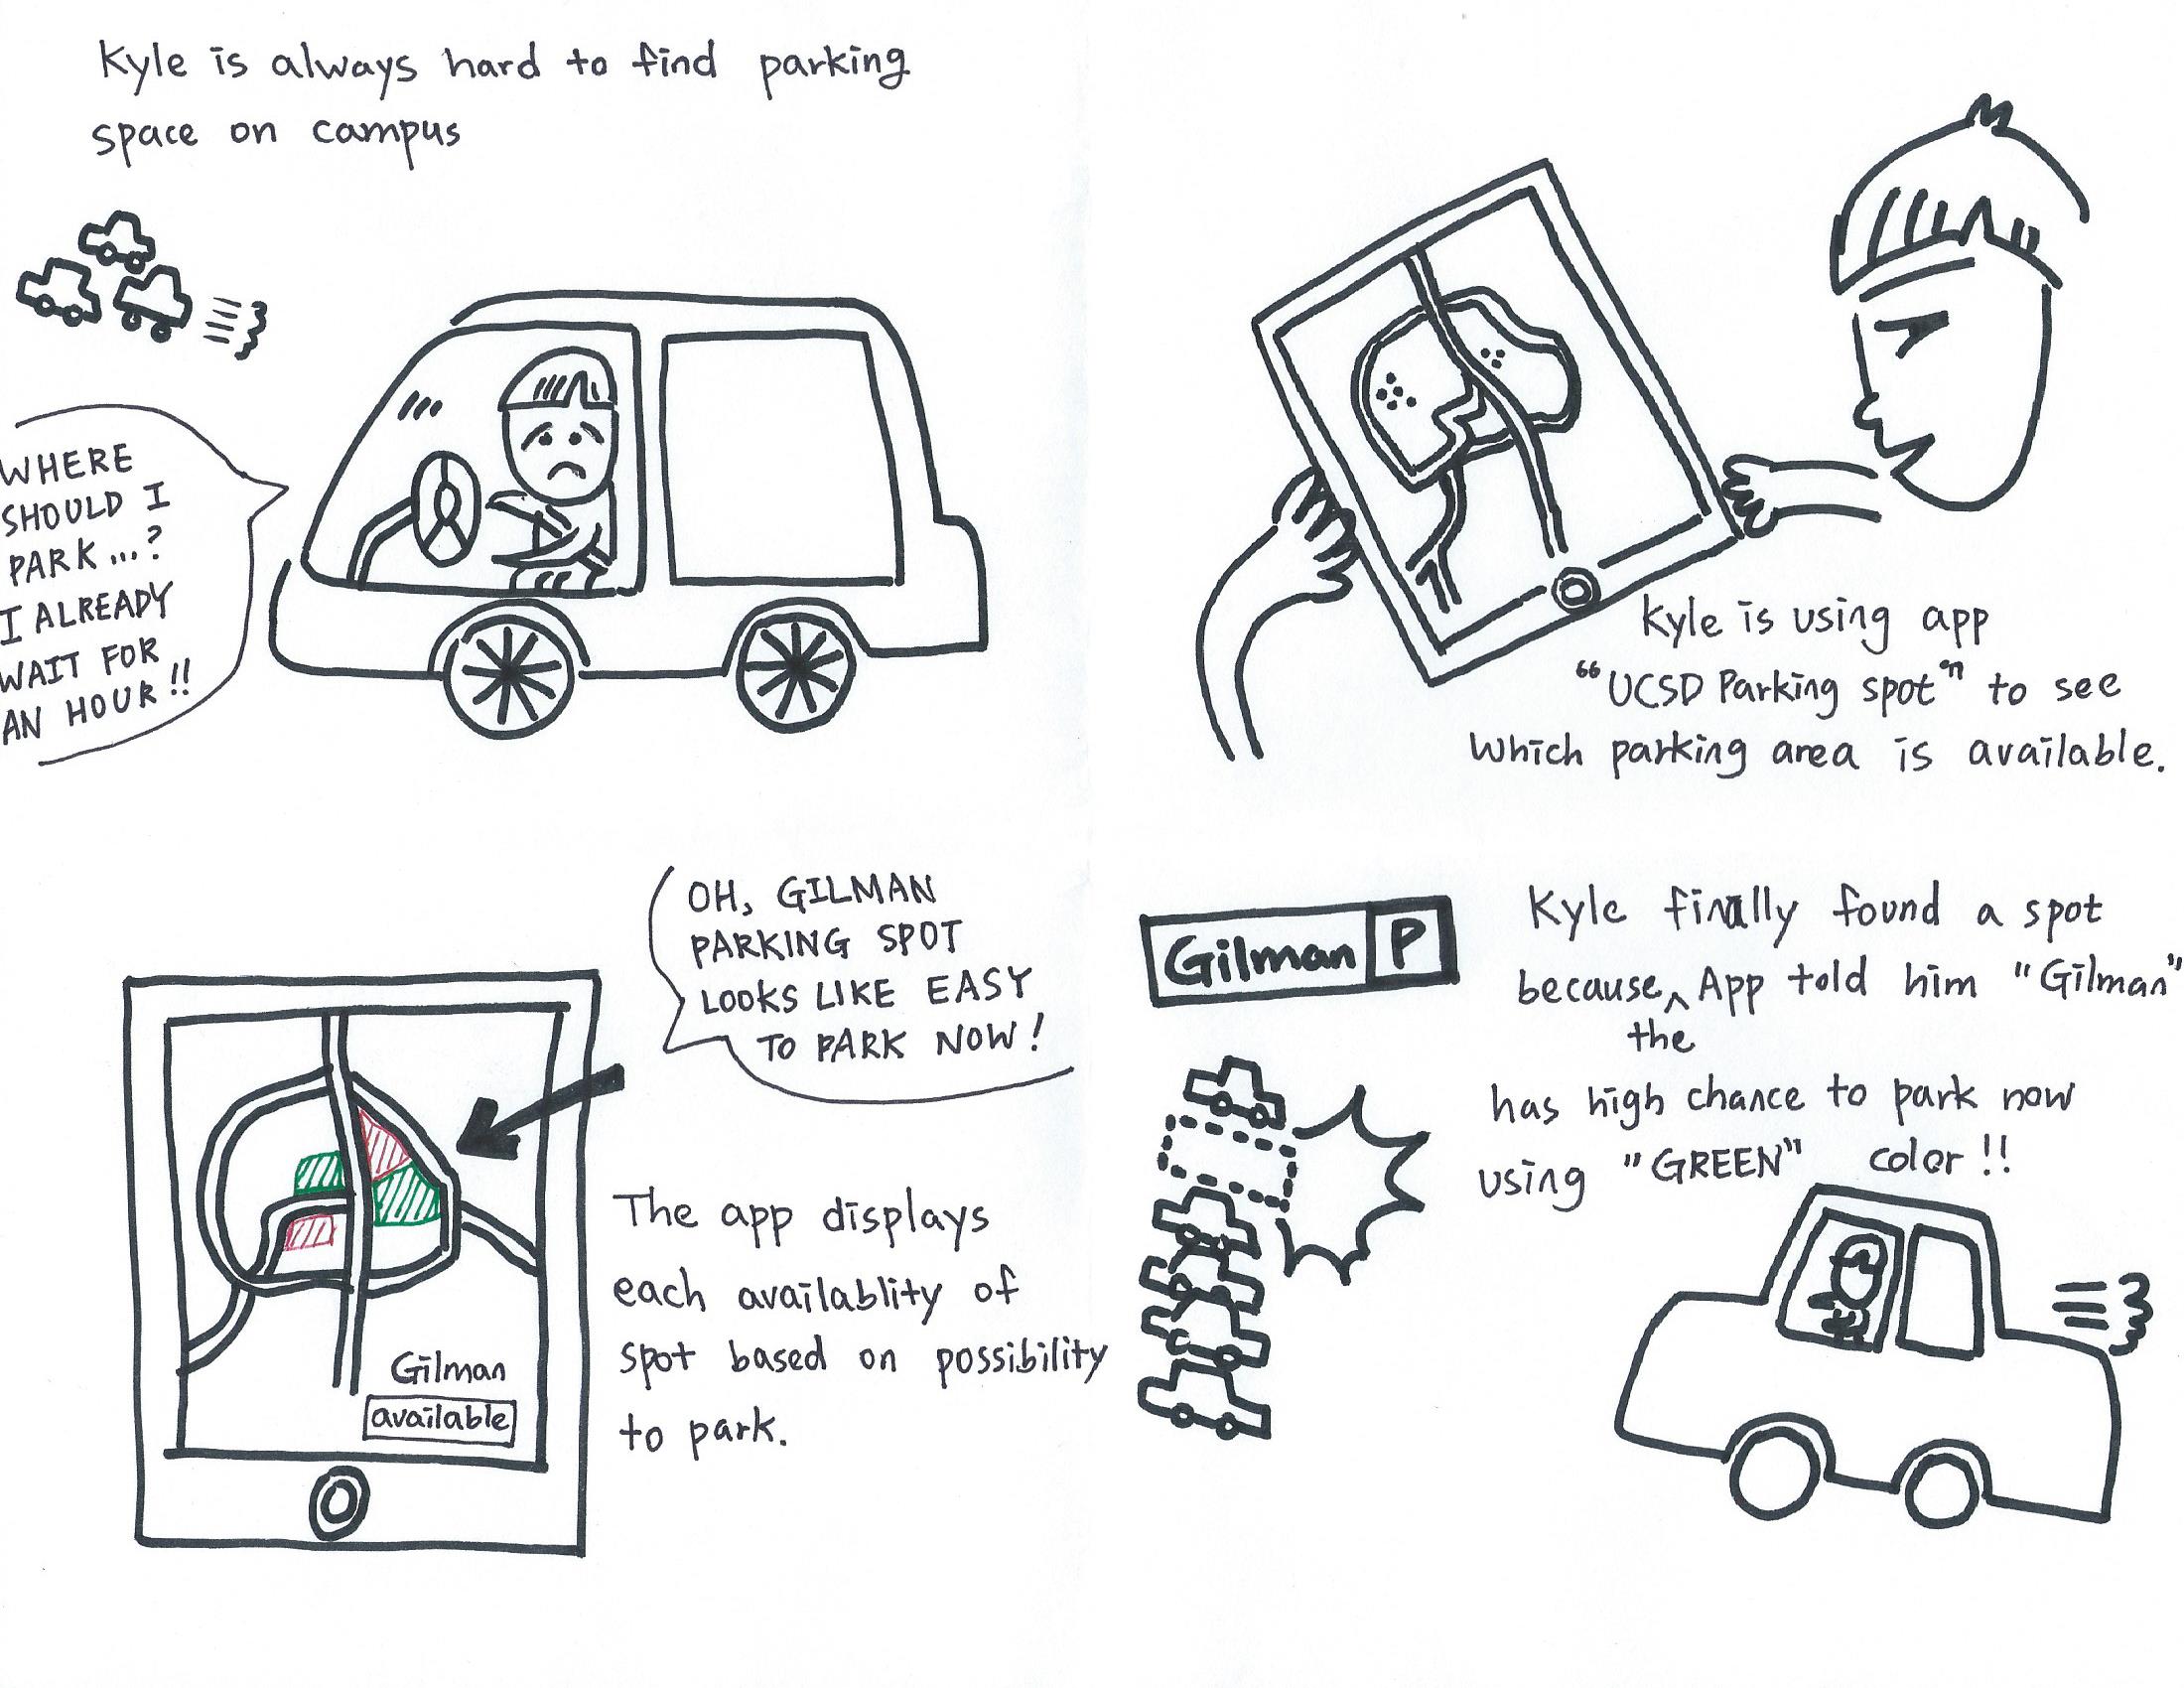 Kyle is always hard to find parking
space on campus
WHERE
SHOULD I
PARK...?
I ALREADY
WAIT FOR
AN HOUR!!
Kyle is using app
"UCSD Parking spot" to see
which parking area is available.
OH, GILMAN
PARKING SPOT
LOOKS LIKE EASY
TO PARK NOW!
Gilman
available
The app displays
each availablity of
spot based on possibility
to park.
Gilman P
Kyle finally found a spot
because ^ App told him "Gilman"
the
has high chance to park now
using "GREEN" color!!